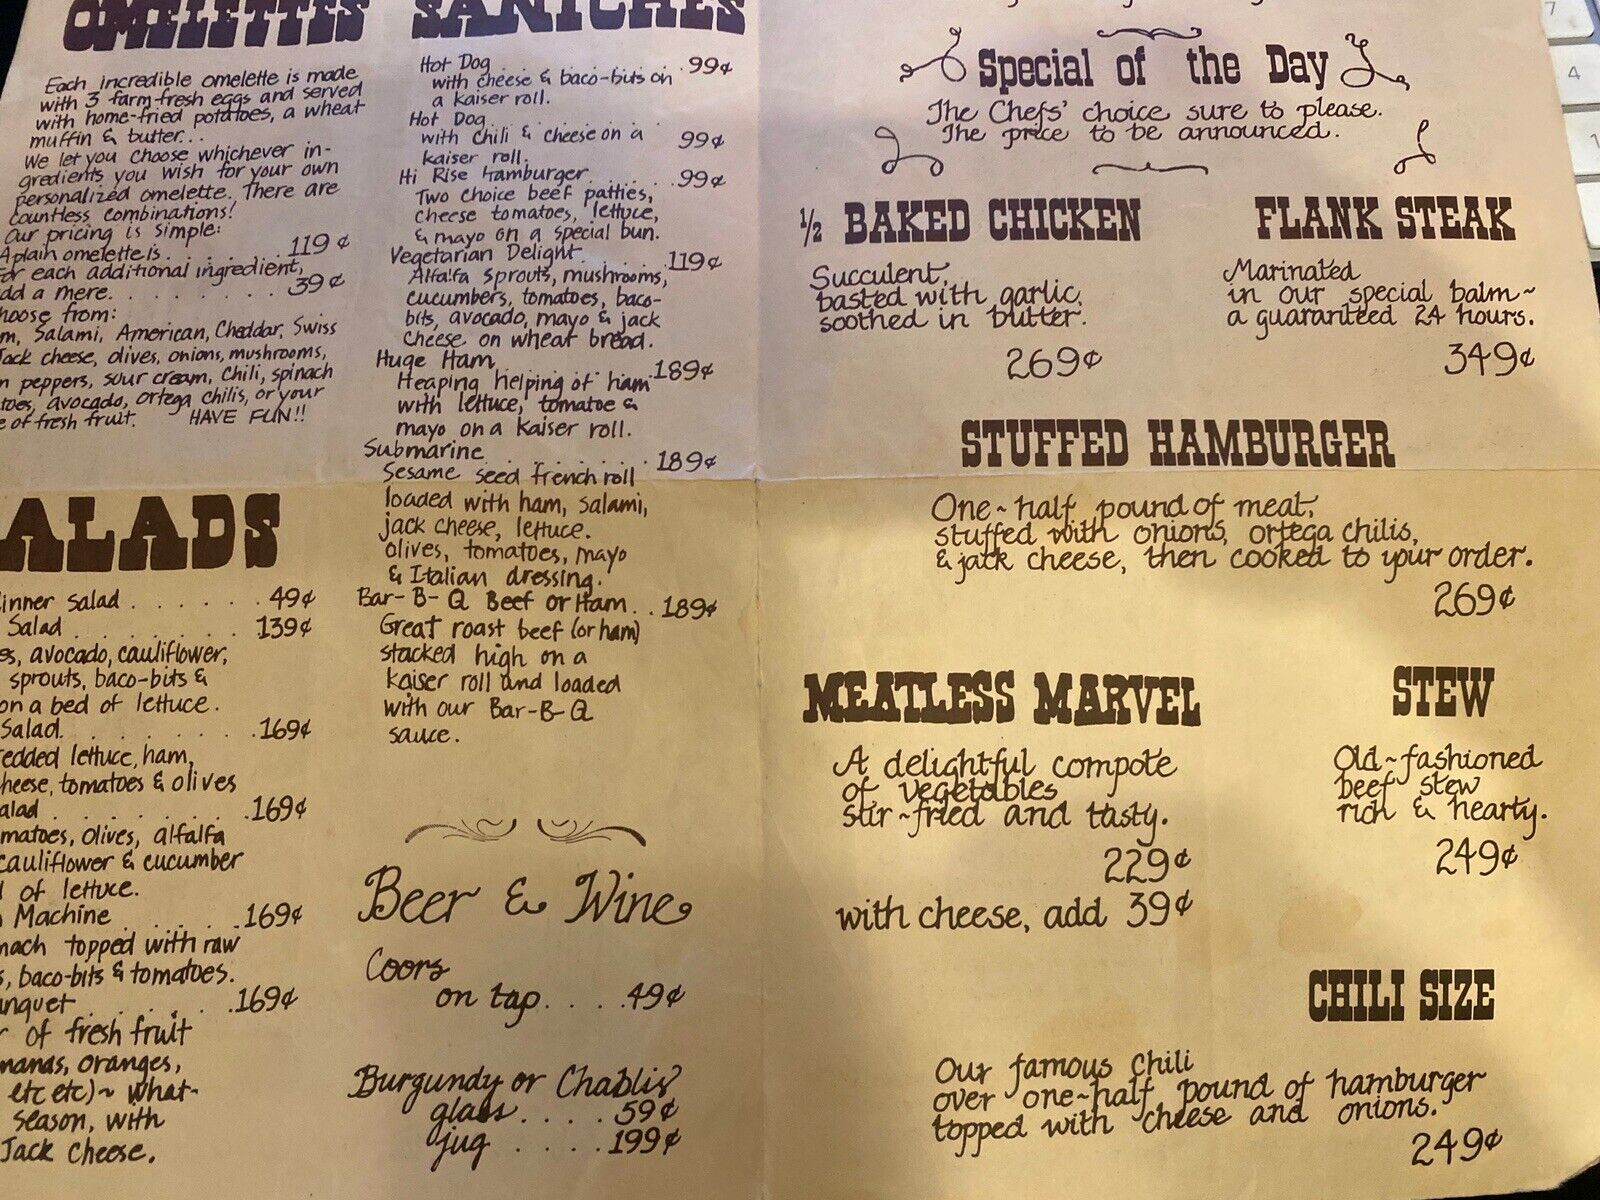 OMELETTES
Each incredible omelette is made
with 3 farm-fresh eggs and served
with home-fried potatoes, a wheat
muffin & butter...
We let you choose whichever in-
gredients you wish for your own
personalized omelette. There are
countless combinations!
Our pricing is simple:
A plain omelette is . . . . . . . . 119¢
For each additional ingredient,
add a mere . . . . . . . . . 39¢
hoose from:
m, Salami, American, Cheddar, Swiss
Jack cheese, olives, onions, mushrooms,
n peppers, sour cream, chili, spinach
toes, avocado, ortega chilis, or your
e of fresh fruit. HAVE FUN!!
ALADS
inner Salad . . . . . . 49¢
Salad . . . . . . . . 139¢
es, avocado, cauliflower,
sprouts, baco-bits &
on a bed of lettuce.
Salad . . . . . . . . 169¢
edded lettuce, ham,
heese, tomatoes & olives
alad . . . . . . . . 169¢
matoes, olives, alfalfa
cauliflower & cucumber
of lettuce.
Machine . . . . . . 169¢
nach topped with raw
s, baco-bits & tomatoes.
nquet . . . . . . . 169¢
r of fresh fruit
nanas, oranges,
etc etc)~ what-
season, with
Jack Cheese.
SANICHES
Hot Dog . . . . . . . . 99¢
with cheese & baco-bits on
a kaiser roll.
Hot Dog . . . . . . . . 99¢
with chili & cheese on a
kaiser roll.
Hi Rise Hamburger . . . . . . 99¢
Two choice beef patties,
cheese tomatoes, lettuce,
& mayo on a special bun.
Vegetarian Delight . . . . . 119¢
Alfalfa sprouts, mushrooms,
cucumbers, tomatoes, baco-
bits, avocado, mayo & jack
cheese on wheat bread.
Huge Ham . . . . . . . 189¢
Heaping helping of ham
with lettuce, tomatoe &
mayo on a kaiser roll.
Submarine . . . . . . . 189¢
Sesame seed french roll
loaded with ham, salami,
jack cheese, lettuce.
olives, tomatoes, mayo
& Italian dressing.
Bar-B-Q Beef or Ham . . . 189¢
Great roast beef (or ham)
stacked high on a
kaiser roll and loaded
with our Bar-B-Q
sauce.
Beer & Wine
Coors
on tap . . . . 49¢
Burgundy or Chablis
glass . . . . 59¢
jug . . . . 199¢
Special of the Day
The Chefs' choice sure to please.
The price to be announced.
1/2 BAKED CHICKEN
Succulent,
basted with garlic,
soothed in butter.
269¢
FLANK STEAK
Marinated
in our special balm~
a guaranteed 24 hours.
349¢
STUFFED HAMBURGER
One~half pound of meat,
stuffed with onions, ortega chilis,
& jack cheese, then cooked to your order.
269¢
MEATLESS MARVEL
A delightful compote
of vegetables
stir~fried and tasty.
229¢
with cheese, add 39¢
STEW
Old~fashioned
beef stew
rich & hearty.
249¢
CHILI SIZE
Our famous chili
over one~half pound of hamburger
topped with cheese and onions.
249¢
7
4
1